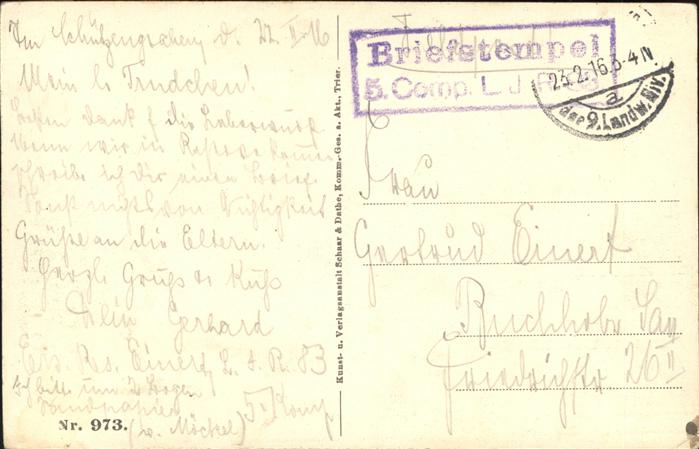 Im Schützengraben d. 22. II. 16
Mein lb Trudchen!
Besten Dank f die Leberwurst
Wenn wir in Reserve kommen
schreibe ich dir einen Brief
Sonst nichts von Wichtigkeit
Grüße an die Eltern.
Herzl Gruß u Kuß
Dein Gerhard
Ers. Res. Einert L. I. R. 83
5. Komp
Ich bitte um 2 Bogen
(v. Möckel)
Nr. 973.
Kunst- u. Verlagsanstalt Schaar & Dathe, Komm.-Ges. a. Akt., Trier.
Briefstempel
5. Comp. L. J. R. 83
23.2.16.3-4N
a
der 9. Landw. Div.
Frau
Gertrud Einert
Buchholz Sa
Friedrichstr 26 II